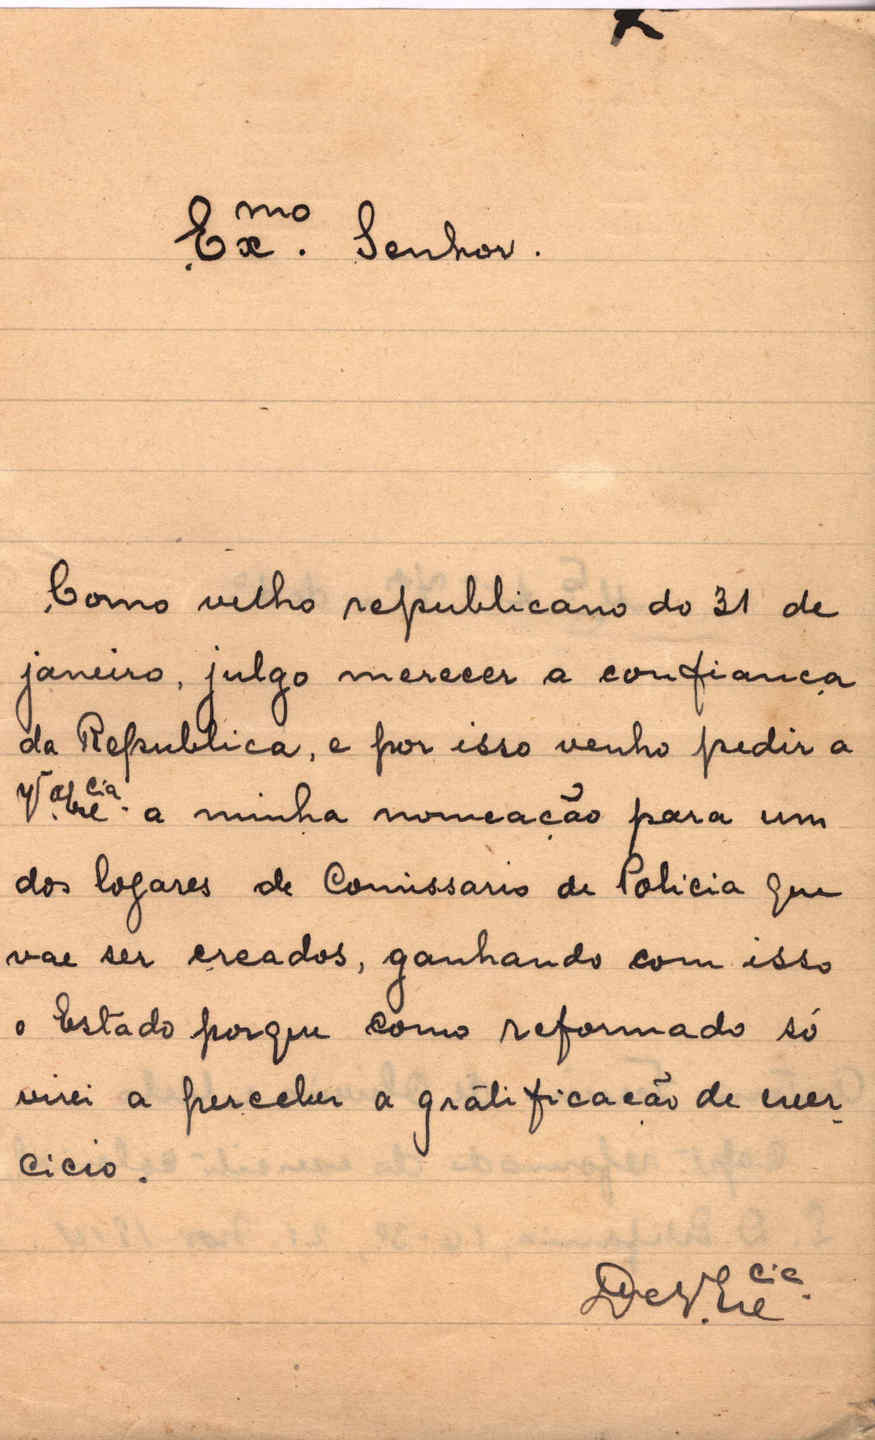 Exmo. Senhor.
Como velho republicano do 31 de
janeiro, julgo merecer a confiança
da Republica, e por isso venho pedir a
V.ª Excia. a minha nomeação para um
dos logares de Comissario de Policia que
vae ser creados, ganhando com isso
o Estado porque como reformado só
virei a perceber a gratificação de exer-
cicio.
De V. Excia.